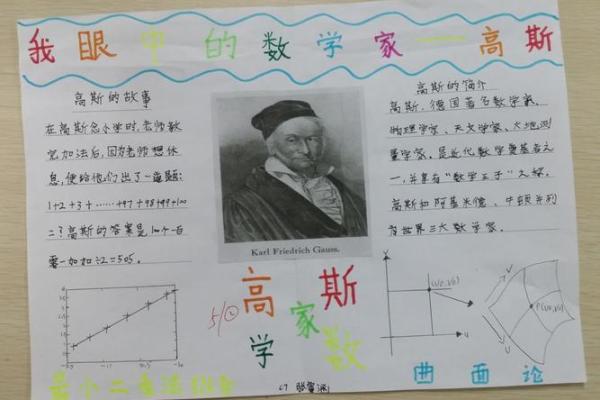 我眼中的数学家——高斯
高斯的故事
在高斯念小学时,老师教
完加法后,因为老师想休
息,便给他们出了一道题:
1+2+3+……+97+98+99+100
=?高斯的答案是100个一百
零一
÷2=505。
Karl Friedrich Gauss.
高斯的简介
高斯,德国著名数学家、
物理学家、天文学家、大地测
量学家,是近代数学奠基者之
一,并享有“数学王子”之称。
高斯和阿基米德、牛顿并列
为世界三大数学家。
高斯
数学家
最小二乘法
曲面论